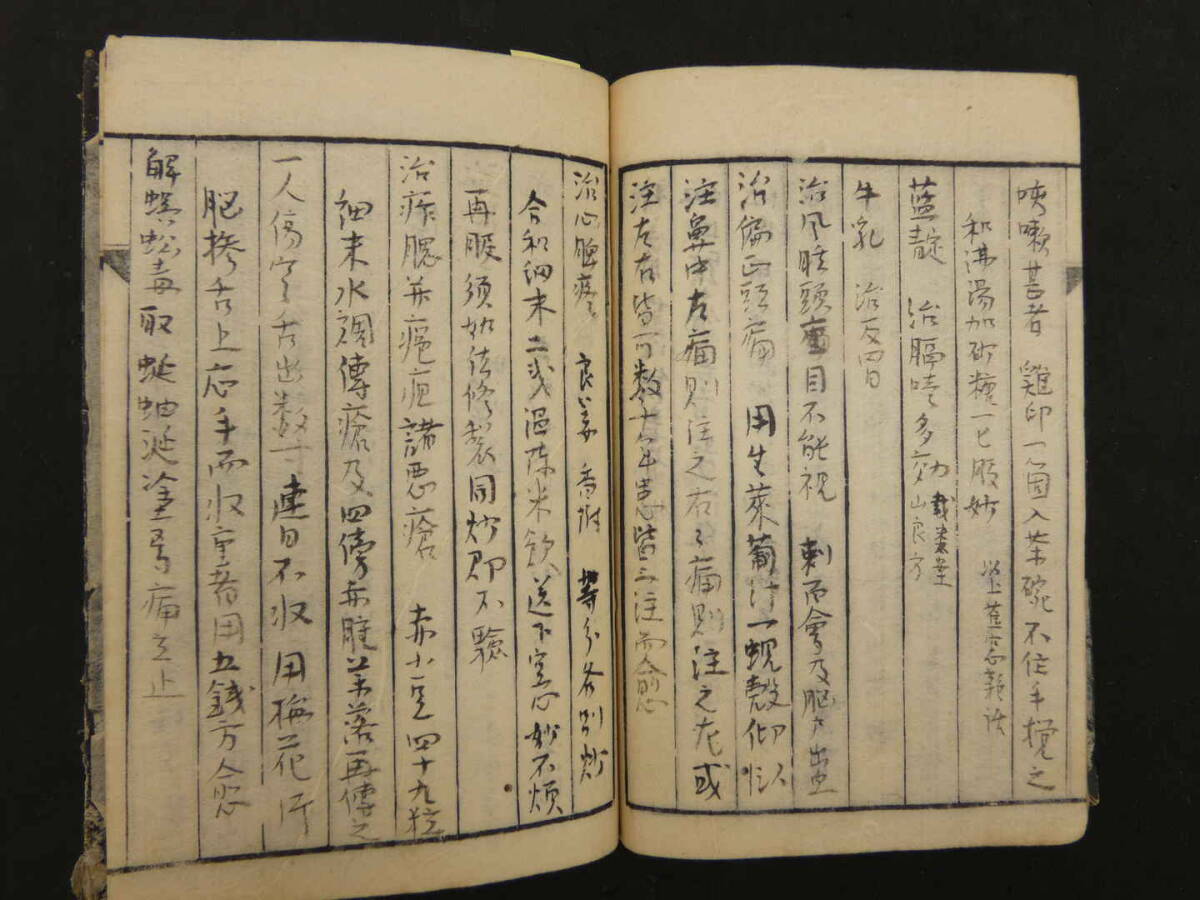 咳嗽甚者 雞卵一箇入茶碗不住手攪之
和沸湯加砂糖一匕服妙 以上
藍靛 治膈噎多効
牛乳 治反胃
治風腫頭重目不能視 刺百會及腦戶出血
治偏正頭痛 用生萊葡汁一蜆殼仰臥
注鼻中左痛則注之右右痛則注之左或
注左右皆可数十年患皆二注而愈
治心脾疼 良姜 香附 等分各別炒
合和細末二戔温陳米飲送下空心妙不煩
再服須如法修製同炒即不驗
治痄腮并疤疽諸悪瘡 赤小豆四十九粒
細末水調傅瘡及四傍赤腫落再傅之
一人傷寒舌出数寸連日不收用梅花片
腦摻舌上應手而收重者用五錢方愈
解蜈蚣毒取蜒蚰涎塗其痛立止